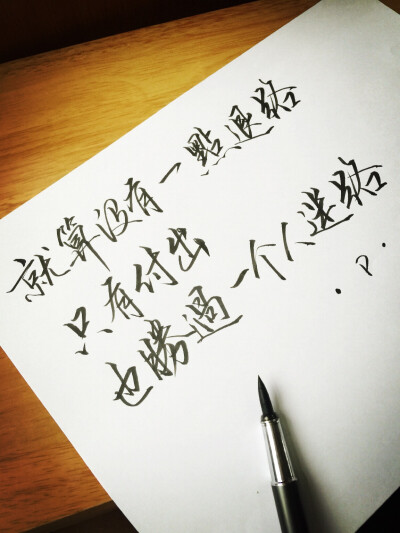 就算没有一點退路
只有付出
也勝過一个人迷路
. P .